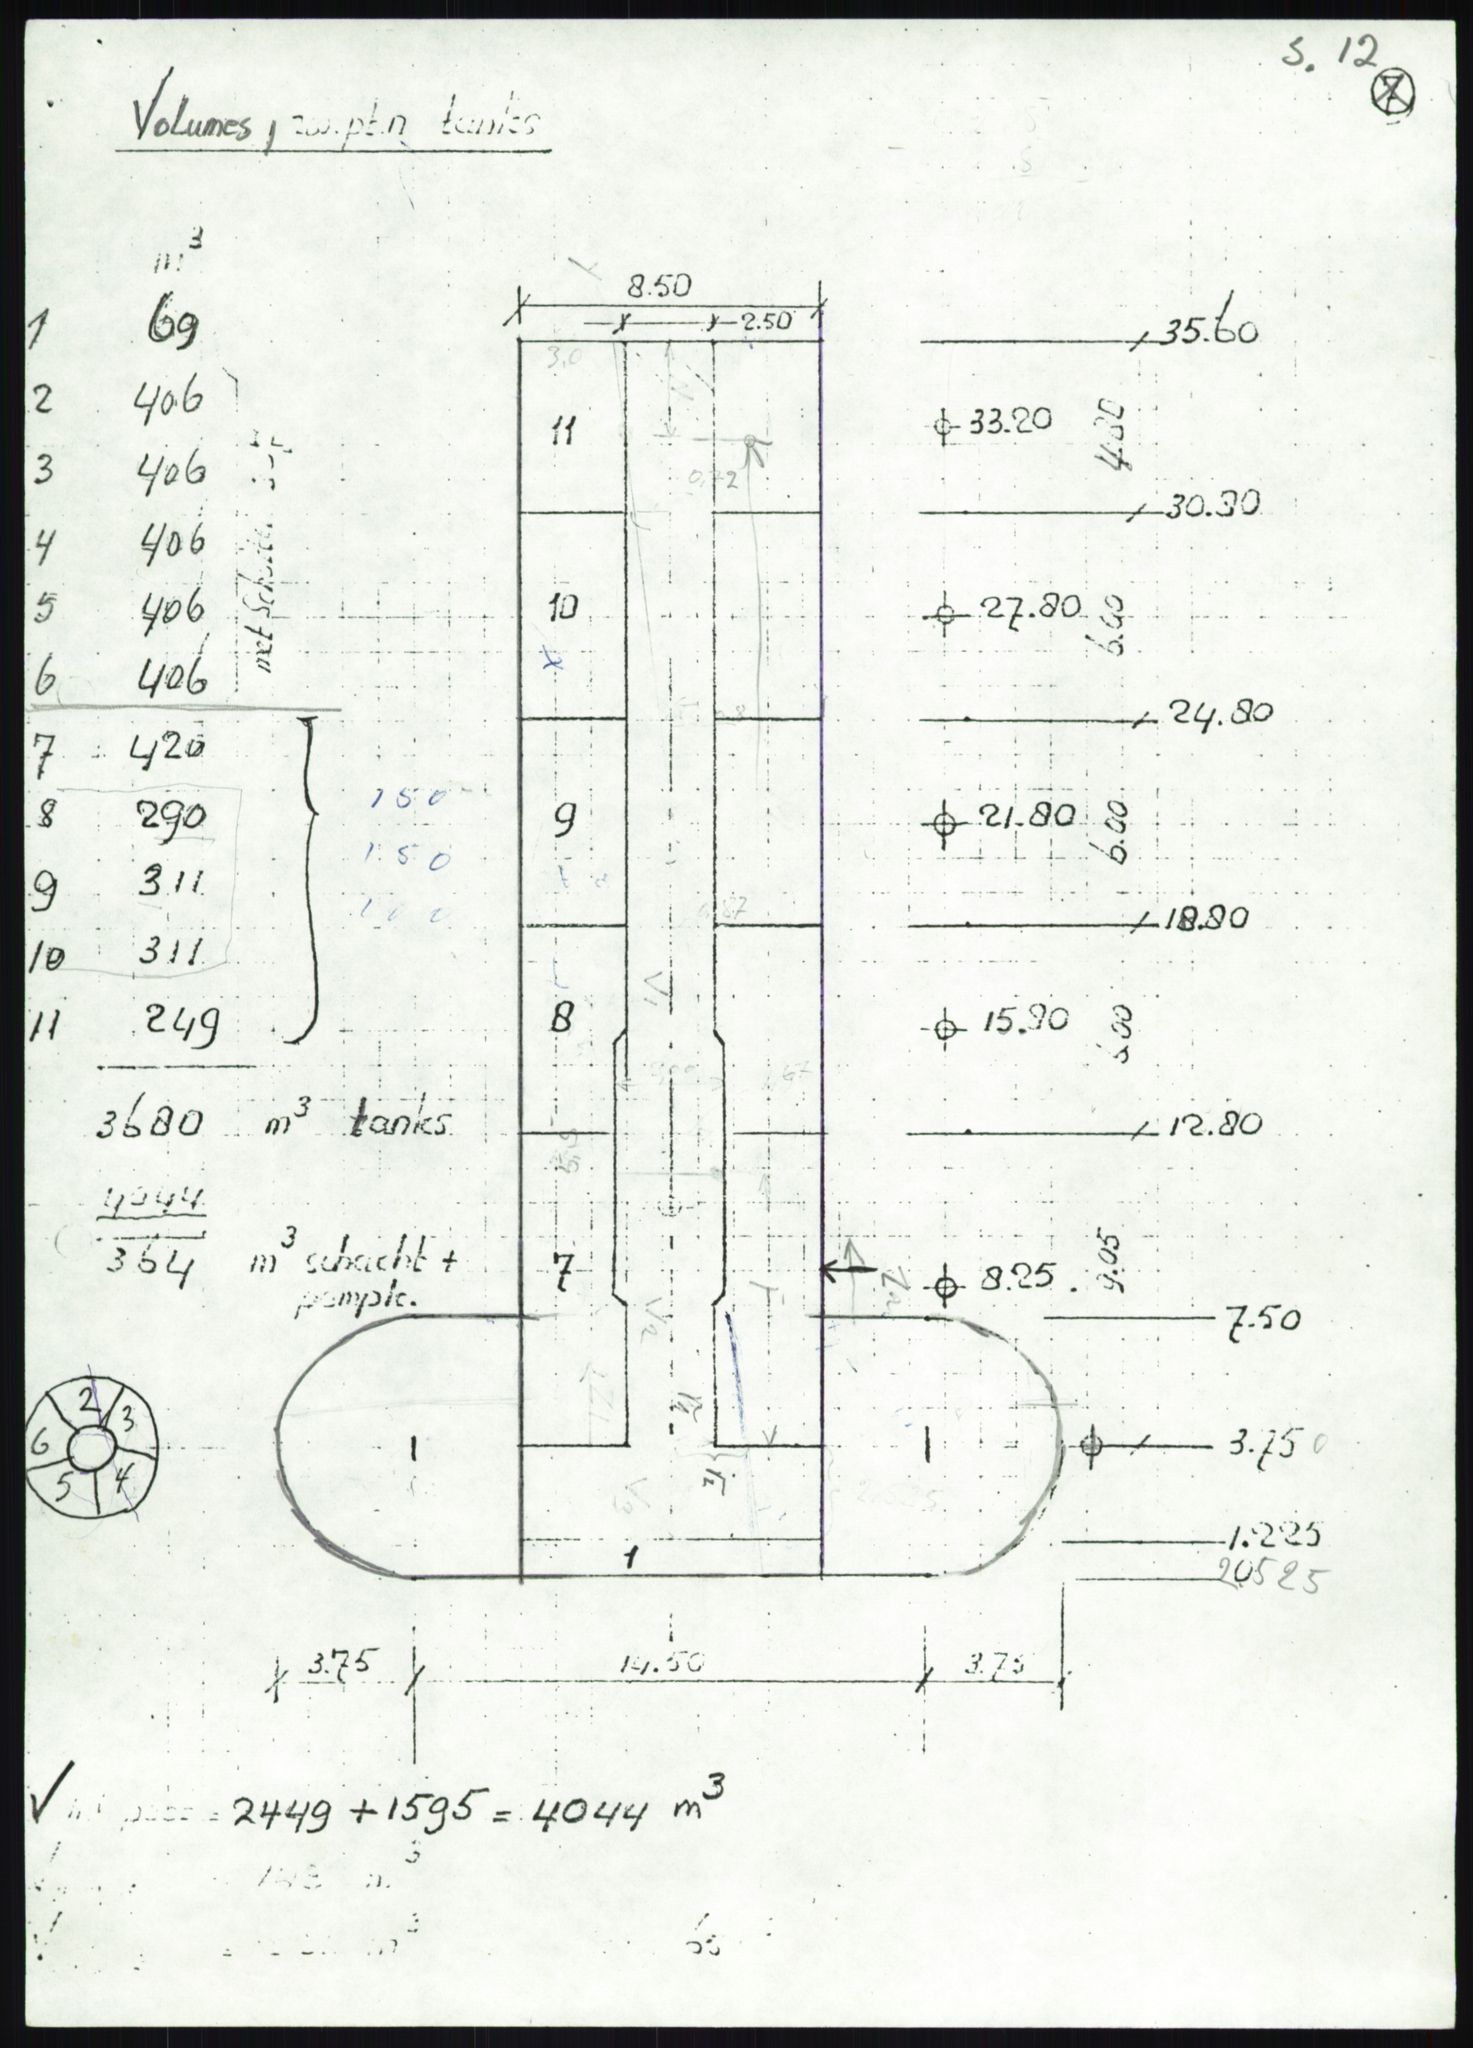 s. 12
7
Volumes, zw.pt.n tanks
m³
1 69
2 406
3 406
4 406
5 406
6 406
met schuim
7 420
8 290
9 311
10 311
11 249
150
150
100
3680 m³ tanks
4044
364 m³ schacht +
pompk.
2
3
4
5
6
8.50
2.50
3.0
11
0,72
10
9
8
7
1
1
1
35.60
33.20
4.80
30.80
27.80
6.00
24.80
21.80
6.00
18.80
15.80
6.00
12.80
8.25
9.05
7.50
3.750
1.225
20525
3.75
14.50
3.75
V = 2449 + 1595 = 4044 m³
m³
m³